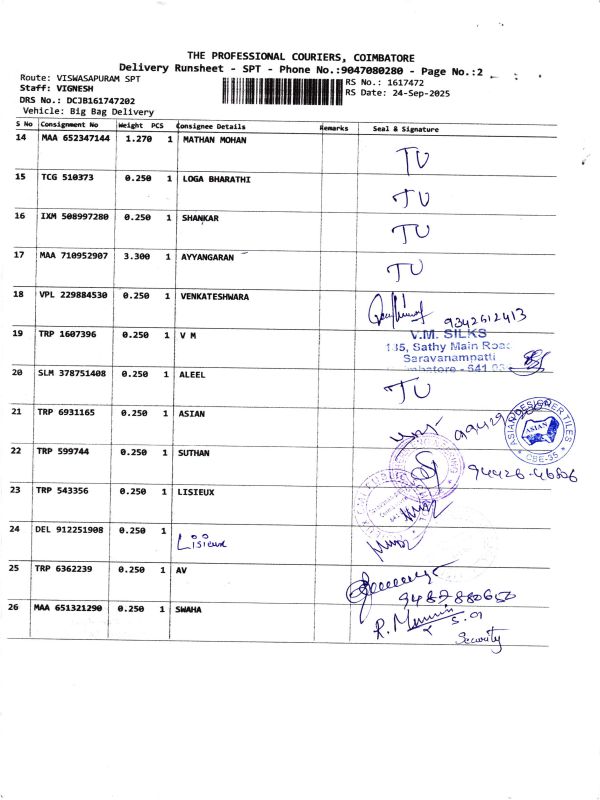 THE PROFESSIONAL COURIERS, COIMBATORE
Delivery Runsheet - SPT - Phone No.:9047080280 - Page No.:2
Route: VISWASAPURAM SPT
RS No.: 1617472
Staff: VIGNESH
RS Date: 24-Sep-2025
DRS No.: DCJB161747202
Vehicle: Big Bag Delivery
S No Consignment No Weight PCS Consignee Details Remarks Seal & Signature
14 MAA 652347144 1.270 1 MATHAN MOHAN TU
15 TCG 510373 0.250 1 LOGA BHARATHI TU
16 IXM 508997280 0.250 1 SHANKAR TU
17 MAA 710952907 3.300 1 AYYANGARAN TU
18 VPL 229884530 0.250 1 VENKATESHWARA 9342612413
19 TRP 1607396 0.250 1 V M V.M. SILKS
135, Sathy Main Road
Saravanampatti
20 SLM 378751408 0.250 1 ALEEL TU
21 TRP 6931165 0.250 1 ASIAN ASIAN DESIGNER TILES ASIAN CBE-35
22 TRP 599744 0.250 1 SUTHAN
23 TRP 543356 0.250 1 LISIEUX
24 DEL 912251908 0.250 1 Lisieux
25 TRP 6362239 0.250 1 AV 9487880650
26 MAA 651321290 0.250 1 SWAHA
Security